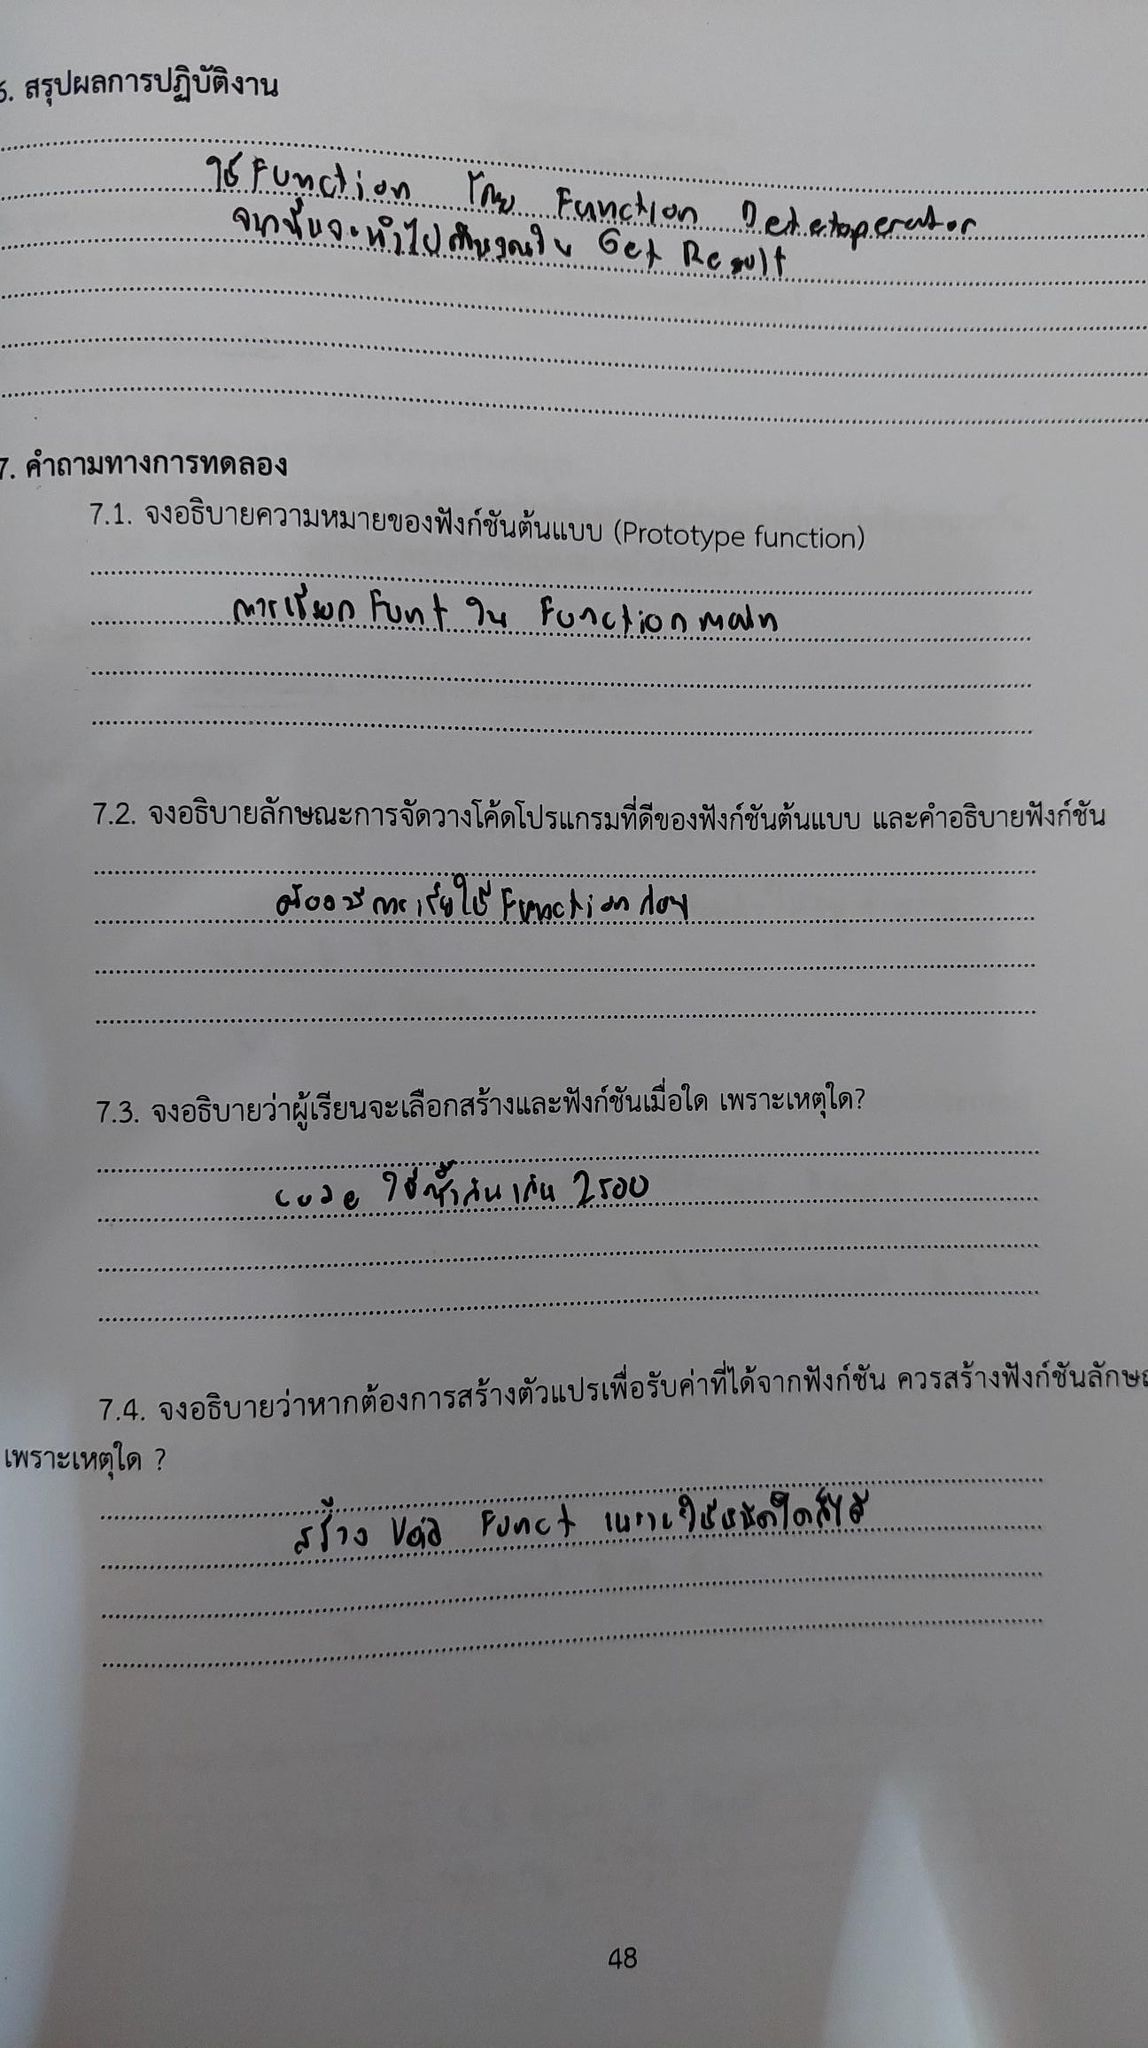 6. สรุปผลการปฏิบัติงาน
ใช้ Function โดย Function Detetoperator
จากนั้นจะทำไปคำนวณใน Get Result
7. คำถามทางการทดลอง
7.1. จงอธิบายความหมายของฟังก์ชันต้นแบบ (Prototype function)
การเรียก Funt ใน Function main
7.2. จงอธิบายลักษณะการจัดวางโค้ดโปรแกรมที่ดีของฟังก์ชันต้นแบบ และคำอธิบายฟังก์ชัน
ต้องมีการเรียใช้ Function ก่อน
7.3. จงอธิบายว่าผู้เรียนจะเลือกสร้างและฟังก์ชันเมื่อใด เพราะเหตุใด?
code ใช้ซ้ำกันเกิน 2 รอบ
7.4. จงอธิบายว่าหากต้องการสร้างตัวแปรเพื่อรับค่าที่ได้จากฟังก์ชัน ควรสร้างฟังก์ชันลักษณ
เพราะเหตุใด ?
สร้าง Void Funct เพราะใช้ชนิดใดก็ได้
48